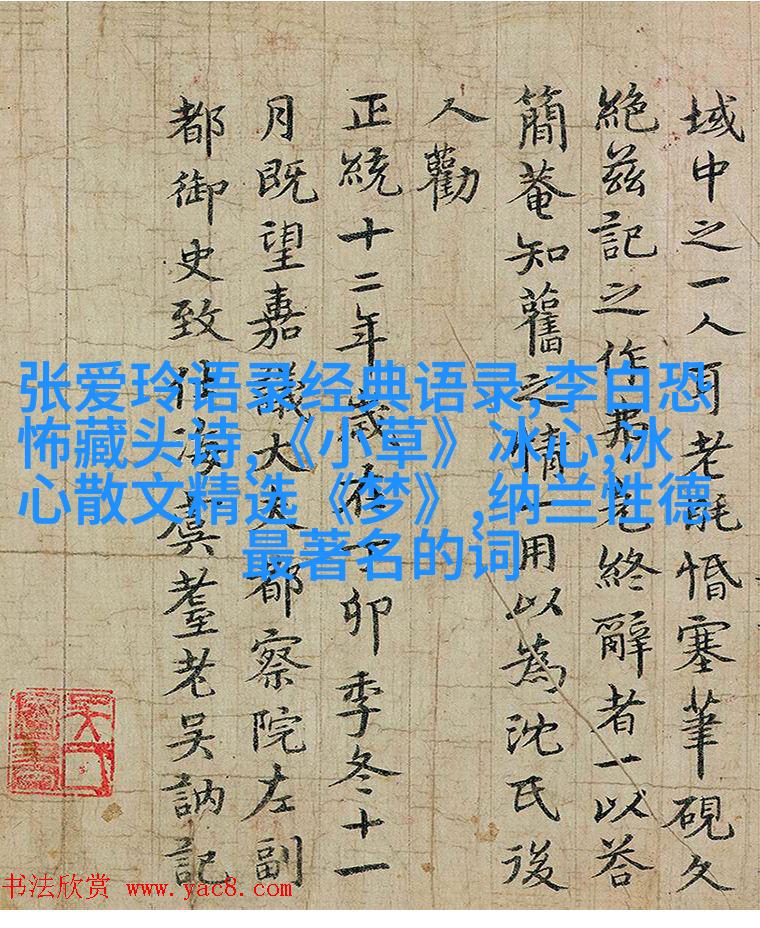 域中之一人耳老惛塞筆硯久
絕兹記之作弗克終辭者一以荅
簡菴知舊之情一用以為沈氏後
人勸
正統十二年歲在丁卯季冬十一
月既望嘉議大夫都察院左副
都御史致仕海虞耋老吴訥記
张爱玲语录经典语录,李白恐
怖藏头诗,《小草》冰心,冰
心散文精选《梦》,纳兰性德
最著名的词
书法欣赏 www.yac8.com